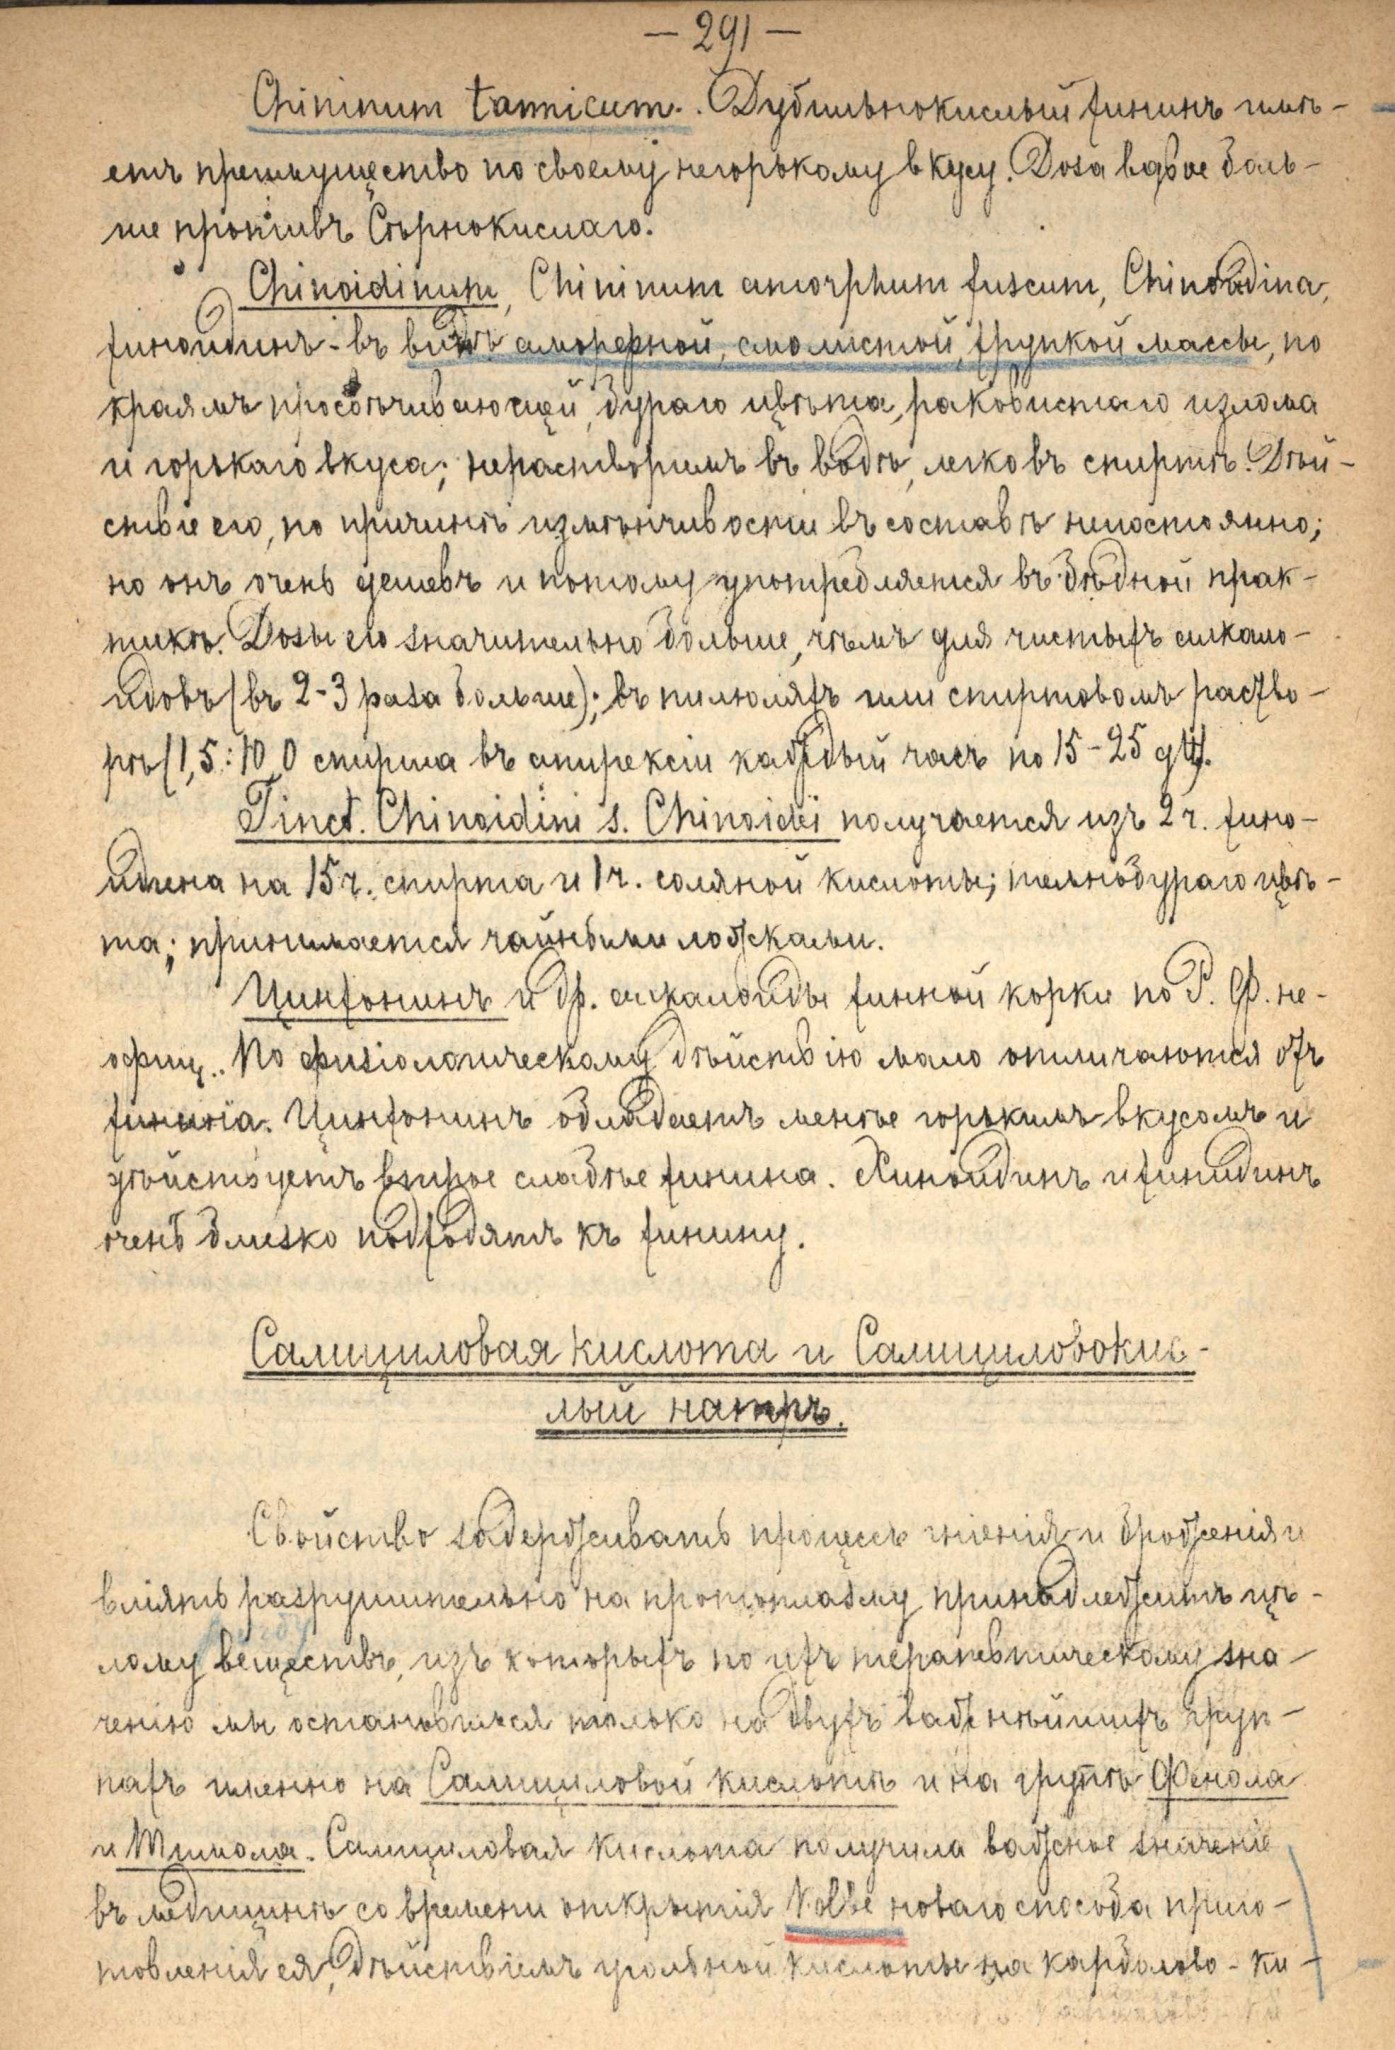 — 291 —
Chininum tannicum. Дубильнокислый хининъ имѣ-
етъ преимущество по своему негорькому вкусу. Doза вдвое боль-
ше противъ Сѣрнокислаго.
Chinoidinum, Chininum amorphum fuscum, Chinoidina,
хиноидинъ - въ видѣ аморфной, смолистой, хрупкой массы, по
краямъ просвѣчивающей, бураго цвѣта, раковистаго излома
и горькаго вкуса; нерастворимъ въ водѣ, легко въ спиртѣ. Дѣй-
ствіе его, по причинѣ измѣнчивости въ составѣ непостоянно;
но онъ очень дешевъ и потому употребляется въ бѣдной прак-
тикѣ. Dозы его значительно больше, чѣмъ для чистыхъ алкало-
идовъ (въ 2-3 раза больше); въ пилюляхъ или спиртовомъ раство-
рѣ (1,5:10,0 спирта въ апирексіи каждый часъ по 15-25 gtt).
Tinct. Chinoidini s. Chinoidei получается изъ 2 ч. хино-
идина на 15 ч. спирта и 1 ч. соляной кислоты; темнобураго цвѣ-
та; принимается чайными ложками.
Цинхонинъ и др. алкалоиды хинной корки по Р. Ф. не-
офиц.. По физіологическому дѣйствію мало отличаются отъ
хинина. Цинхонинъ обладаетъ менѣе горькимъ вкусомъ и
дѣйствуетъ втрое слабѣе хинина. Хиноидинъ и хинидинъ
очень близко подходятъ къ хинину.
Салициловая кислота и Салициловокис-
лый натръ.
Свойство задерживать процессъ гніенія и броженія и
вліять разрушительно на протоплазму принадлежитъ цѣ-
лому веществъ, изъ которыхъ по ихъ терапевтическому зна-
ченію мы остановимся только на двухъ важнѣйшихъ груп-
пахъ именно на Салициловой кислотѣ и на групѣ Фенола
и Тимола. Салициловая кислота получила важное значеніе
въ медицинѣ со времени открытія Kolbe новаго способа приго-
товленія ея, дѣйствіемъ угольной кислоты на карболово-ки-